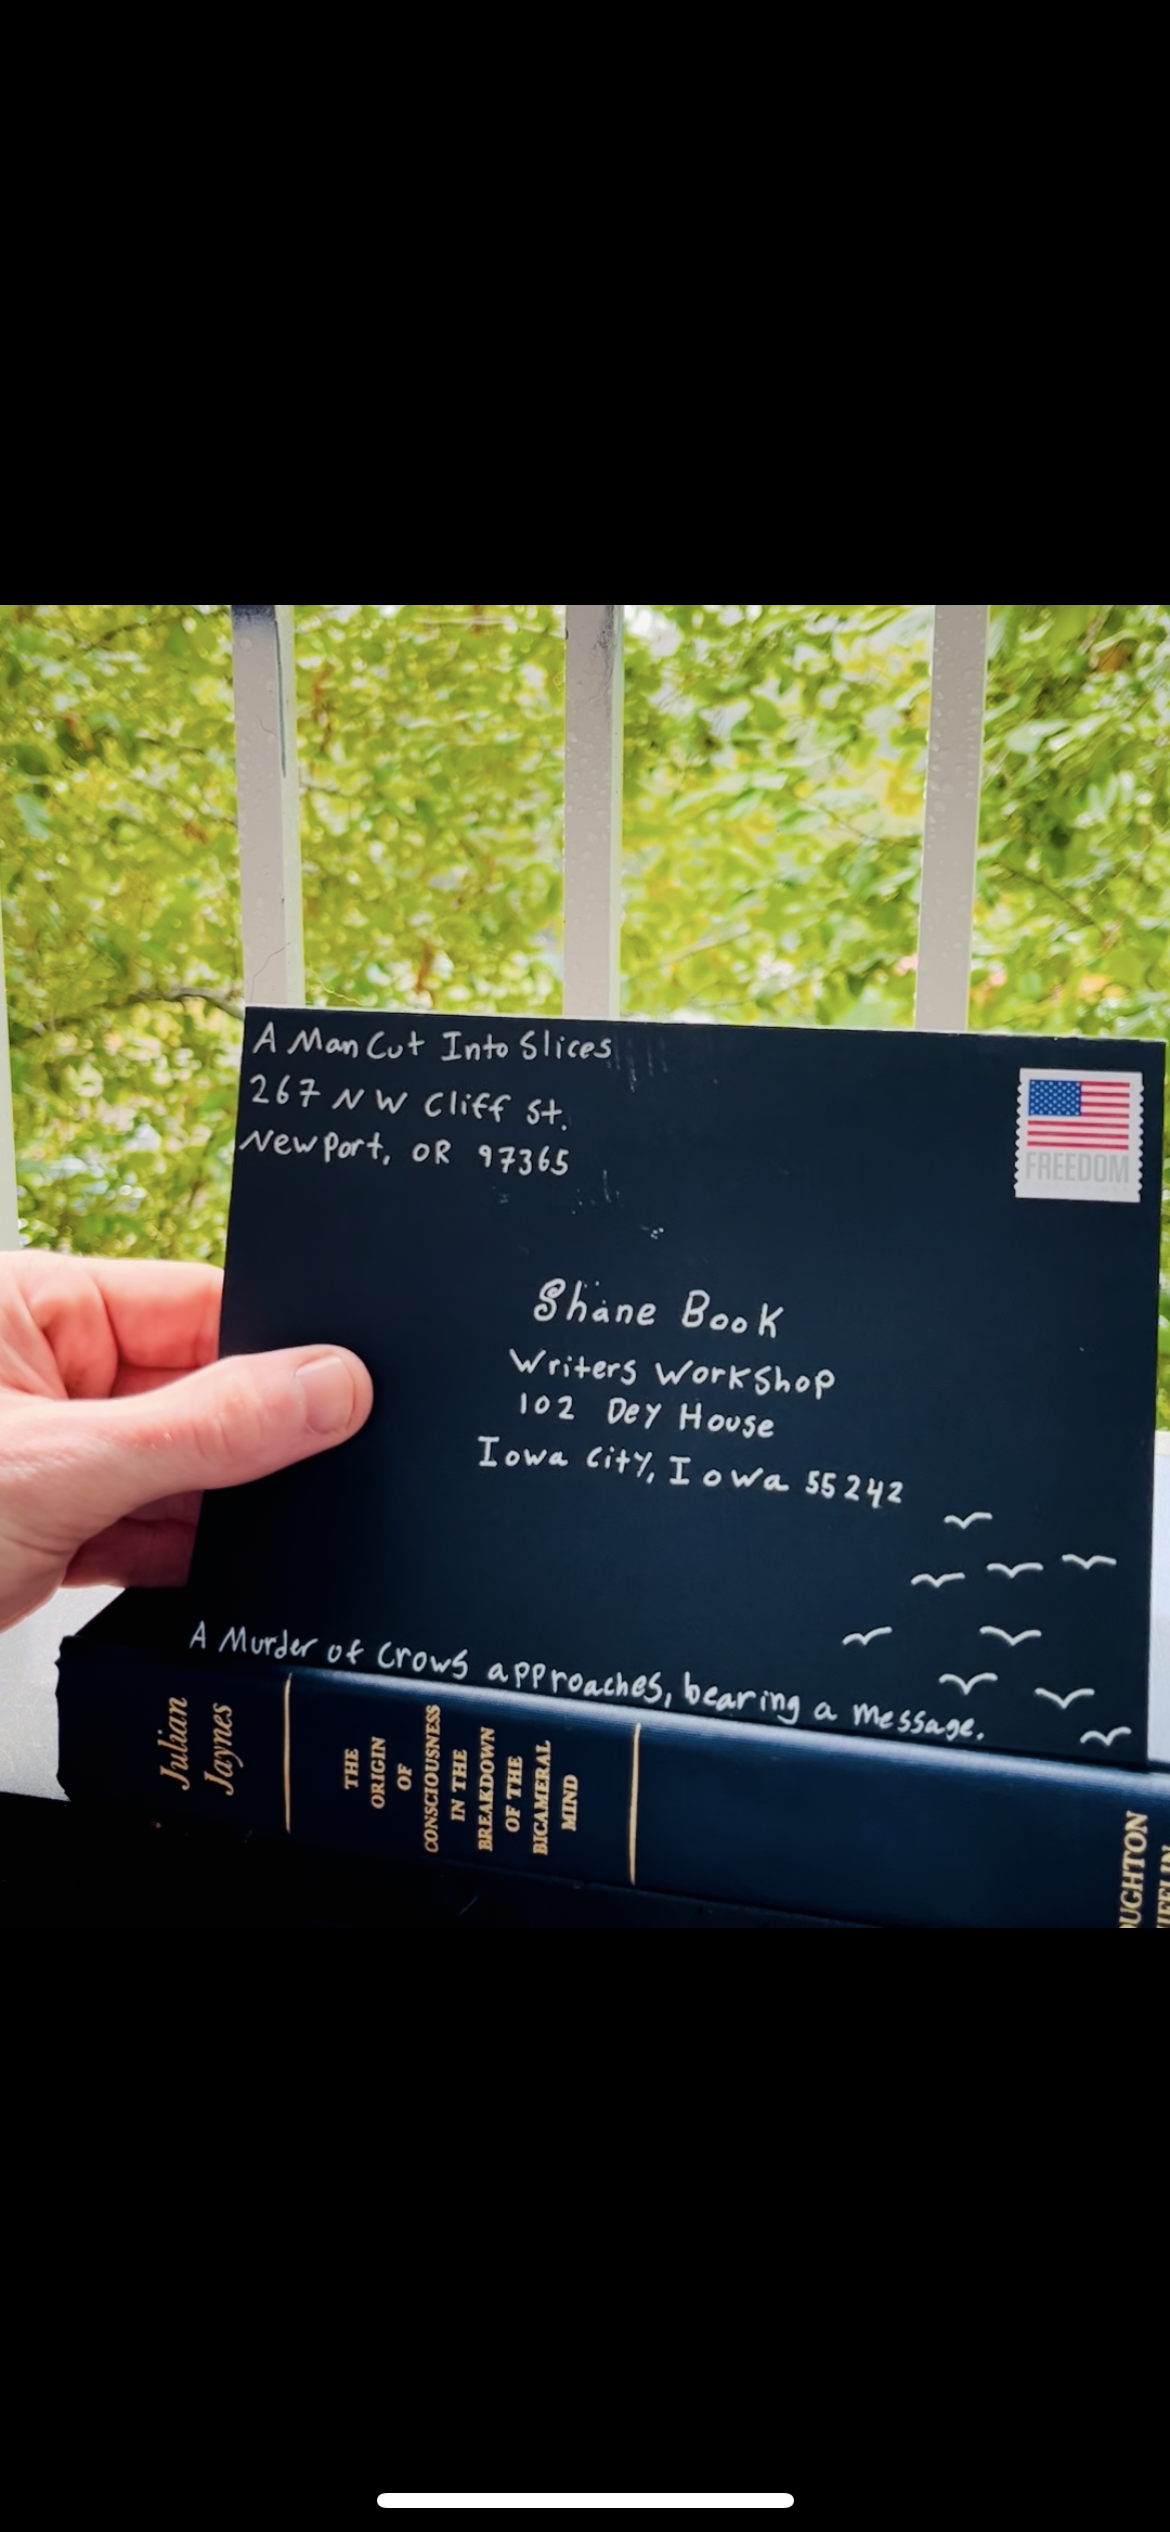 A Man Cut Into Slices
267 NW Cliff St.
Newport, OR 97365
FREEDOM
Shane Book
Writers Workshop
102 Dey House
Iowa City, Iowa 55242
A Murder of Crows approaches, bearing a message.
Julian
Jaynes
THE
ORIGIN
OF
CONSCIOUSNESS
IN THE
BREAKDOWN
OF THE
BICAMERAL
MIND